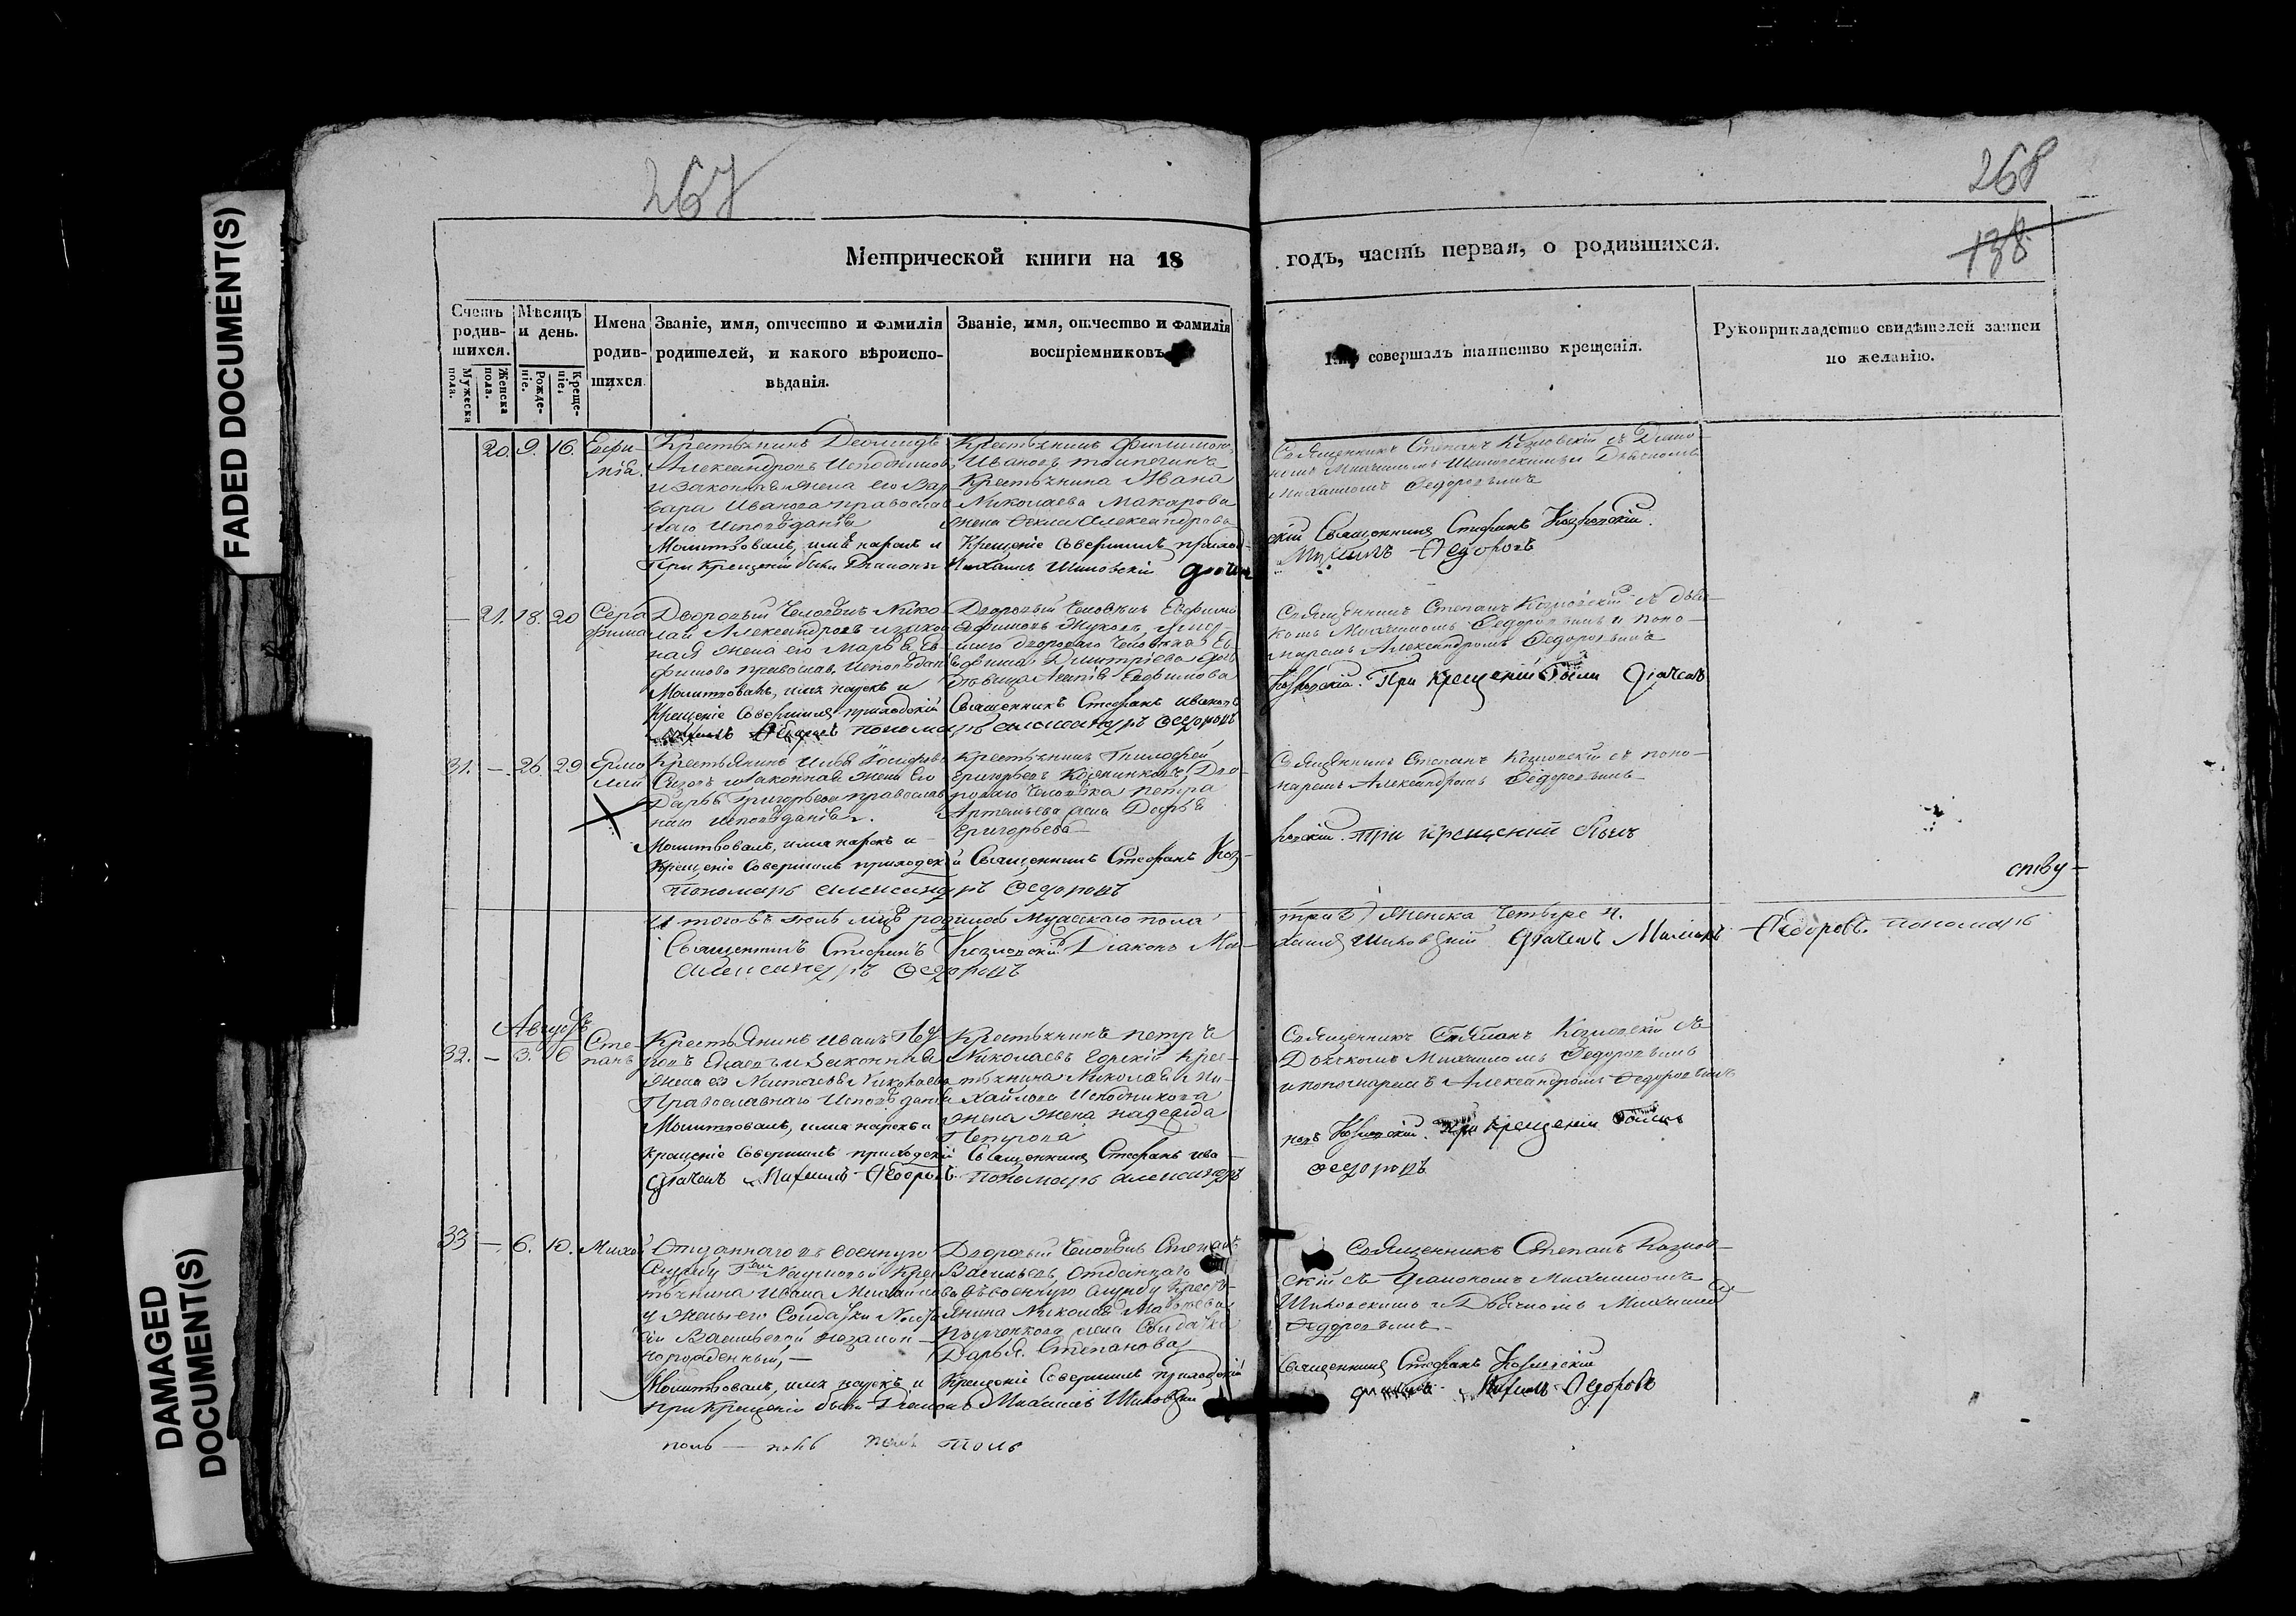 FADED DOCUMENT(S)
DAMAGED
DOCUMENT(S)
267
268
138
Метрической книги на 18
годъ, часть первая, о родившихся.
Счетъ родив-шихся.
Мужеска пола.
Женска пола.
Мѣсяцъ и день.
Рожде-ніе.
Креще-ніе.
Имена родив-шихся
Званіе, имя, отчество и фамилія
родителей, и какого вѣроиспо-
вѣданія.
Званіе, имя, отчество и фамилія
воспріемниковъ
совершалъ таинство крещенія.
Рукоприкладство свидѣтелей записи
по желанію.
20. 9. 16. Евфи-
мія.
Крестьянинъ
Александровъ
и законная жена его Вар
вара Иванова православ
наго исповѣданія
Молитвовалъ, имя нарекъ и
При крещеніи были Діаконъ
Крестьянинъ Филимонъ
Ивановъ
Крестьянина Ивана
Николаева Макарова
жена Александрова
Крещеніе совершилъ приход
Михаилъ Шиповскій дьячек
Священникъ Степанъ Козловскій съ Діако-
номъ Михаиломъ Шиповскимъ и Дьячкомъ
Михаиломъ Федоровымъ
скій Священникъ Стефанъ Козловскій.
Михаилъ Федоровъ
— 21. 18. 20 Сера
фима
Дворовый Человѣкъ Нико
лай Александровъ и закон
ная жена его Марья Ев-
фимова православ. исповѣдан
Молитвовалъ, имя нарекъ и
Крещеніе совершилъ приходскій
Федоровъ пономарь Александръ Федоровъ
Дворовый Человѣкъ Евфимъ
дворового Человѣка Ев
фима Дмитріева дочь
дѣвица Евфимова
Священникъ Стефанъ Ивановъ
Священникъ Степанъ Козловскій съ дьяч-
комъ Михаиломъ Федоровымъ и поно-
маремъ Александромъ Федоровымъ
Козловскій. При крещеніи были Дьячекъ
31. — 26. 29 Ермо
лай
Крестьянинъ Илья Іосифовъ
и законная жена его
Дарья Григорьева православ
наго исповѣданія.
Молитвовалъ, имя нарекъ и
Крещеніе совершилъ приходск
Пономарь Александръ Федоровъ
Крестьянинъ Тимофей
Григорьевъ Дво-
роваго Человѣка Петра
Артемьева жена Дарья
Григорьева
й Священникъ Стефанъ Коз-
Священникъ Степанъ Козловскій съ поно-
маремъ Александромъ Федоровымъ
ловскій. При крещеніи былъ
ству-
Итого въ Іюлѣ мцѣ родилось Мужескаго пола
три 3) Женска четыре 4.
Священникъ Стефанъ Козловскій Діаконъ Ми-
хаилъ Шиповскій Дьячекъ Михаилъ Федоровъ. пономарь
Александръ Федоровъ
Августъ
32. — 3. 6 Сте-
панъ
Крестьянинъ Иванъ
и законная
жена его Николаева
Православнаго Исповѣданія
Молитвовалъ, имя нарекъ и
Крещеніе совершилъ приходскі
Дьячекъ Михаилъ Федоровъ. Пономарь Александръ
Крестьянинъ Петръ
Николаевъ Горскій Крес-
тьянина Николая Ми-
хайлова Исподникова
жена жена Надежда
Петрова
й Священникъ Стефанъ Ива
Священникъ Степанъ Козловскій съ
Дьячкомъ Михаиломъ Федоровымъ
и пономаремъ Александромъ Федоровымъ
новъ Козловскій. При крещеніи были
Федоровъ
33 — 6. 10. Миха
Отданнаго въ военную
службу Наумовой Крес
тьянина Ивана Михайлова
у жены его Солдатки
Васильевой незакон-
норожденный, —
Молитвовалъ, имя нарекъ и
При крещеніи были Діаконъ Михаилъ Шиповскій
Дворовый Человѣкъ Степанъ
Васильевъ, отданнаго
въ военную службу Крест-
янина Николая Матвѣева
жена Солдатка
Дарья Степанова
Крещеніе совершилъ приходскій
Священникъ Степанъ Козлов-
скій съ Діакономъ Михаиломъ
Шиповскимъ и Дьячкомъ Михаиломъ
Федоровымъ
Священникъ Стефанъ Козловскій
дьячекъ Михаилъ Федоровъ